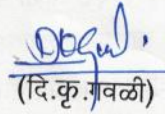 (दि.कृ.गवळी)